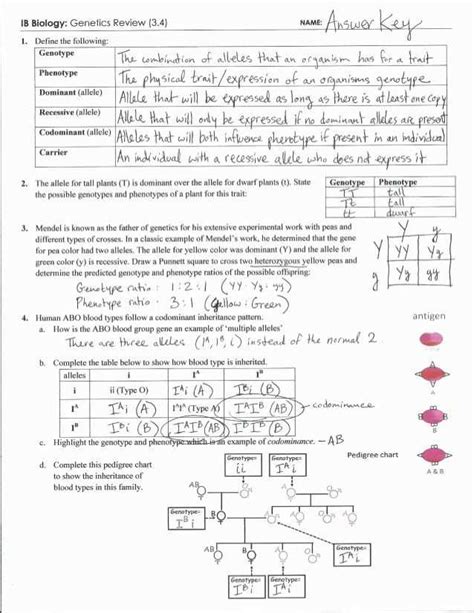 IB Biology: Genetics Review (3.4) NAME: Answer Key
1. Define the following:
Genotype The combination of alleles that an organism has for a trait
Phenotype The physical trait/expression of an organisms genotype
Dominant (allele) Allele that will be expressed as long as there is at least one copy
Recessive (allele) Allele that will only be expressed if no dominant alleles are present
Codominant (allele) Alleles that will both influence phenotype if present in an individual
Carrier An individual with a recessive allele who does not express it
2. The allele for tall plants (T) is dominant over the allele for dwarf plants (t). State
the possible genotypes and phenotypes of a plant for this trait:
Genotype Phenotype
TT tall
Tt tall
tt dwarf
3. Mendel is known as the father of genetics for his extensive experimental work with peas and
different types of crosses. In a classic example of Mendel's work, he determined that the gene
for pea color had two alleles. The allele for yellow color was dominant (Y) and the allele for
green color (y) is recessive. Draw a Punnett square to cross two heterozygous yellow peas and
determine the predicted genotype and phenotype ratios of the possible offspring:
Y y
Y YY Yy
y Yy yy
Genotype ratio : 1:2:1 (YY:Yy:yy)
Phenotype ratio : 3:1 (Yellow:Green)
4. Human ABO blood types follow a codominant inheritance pattern.
a. How is the ABO blood group gene an example of 'multiple alleles'
There are three alleles (Iᴬ, Iᴮ, i) instead of the normal 2
antigen
b. Complete the table below to show how blood type is inherited.
alleles i Iᴬ Iᴮ
i ii (Type O) Iᴬi (A) Iᴮi (B)
Iᴬ Iᴬi (A) IᴬIᴬ (Type A) IᴬIᴮ (AB) codominance
Iᴮ Iᴮi (B) IᴬIᴮ (AB) IᴮIᴮ (B)
A
B
A & B
c. Highlight the genotype and phenotype which is an example of codominance. – AB
d. Complete this pedigree chart
to show the inheritance of
blood types in this family.
Pedigree chart
Genotype= ii
Genotype= Iᴬi
AB
Genotype= Iᴮi
B
Genotype= Iᴮi
AB
B
Genotype= Iᴮi
Genotype= Iᴬi